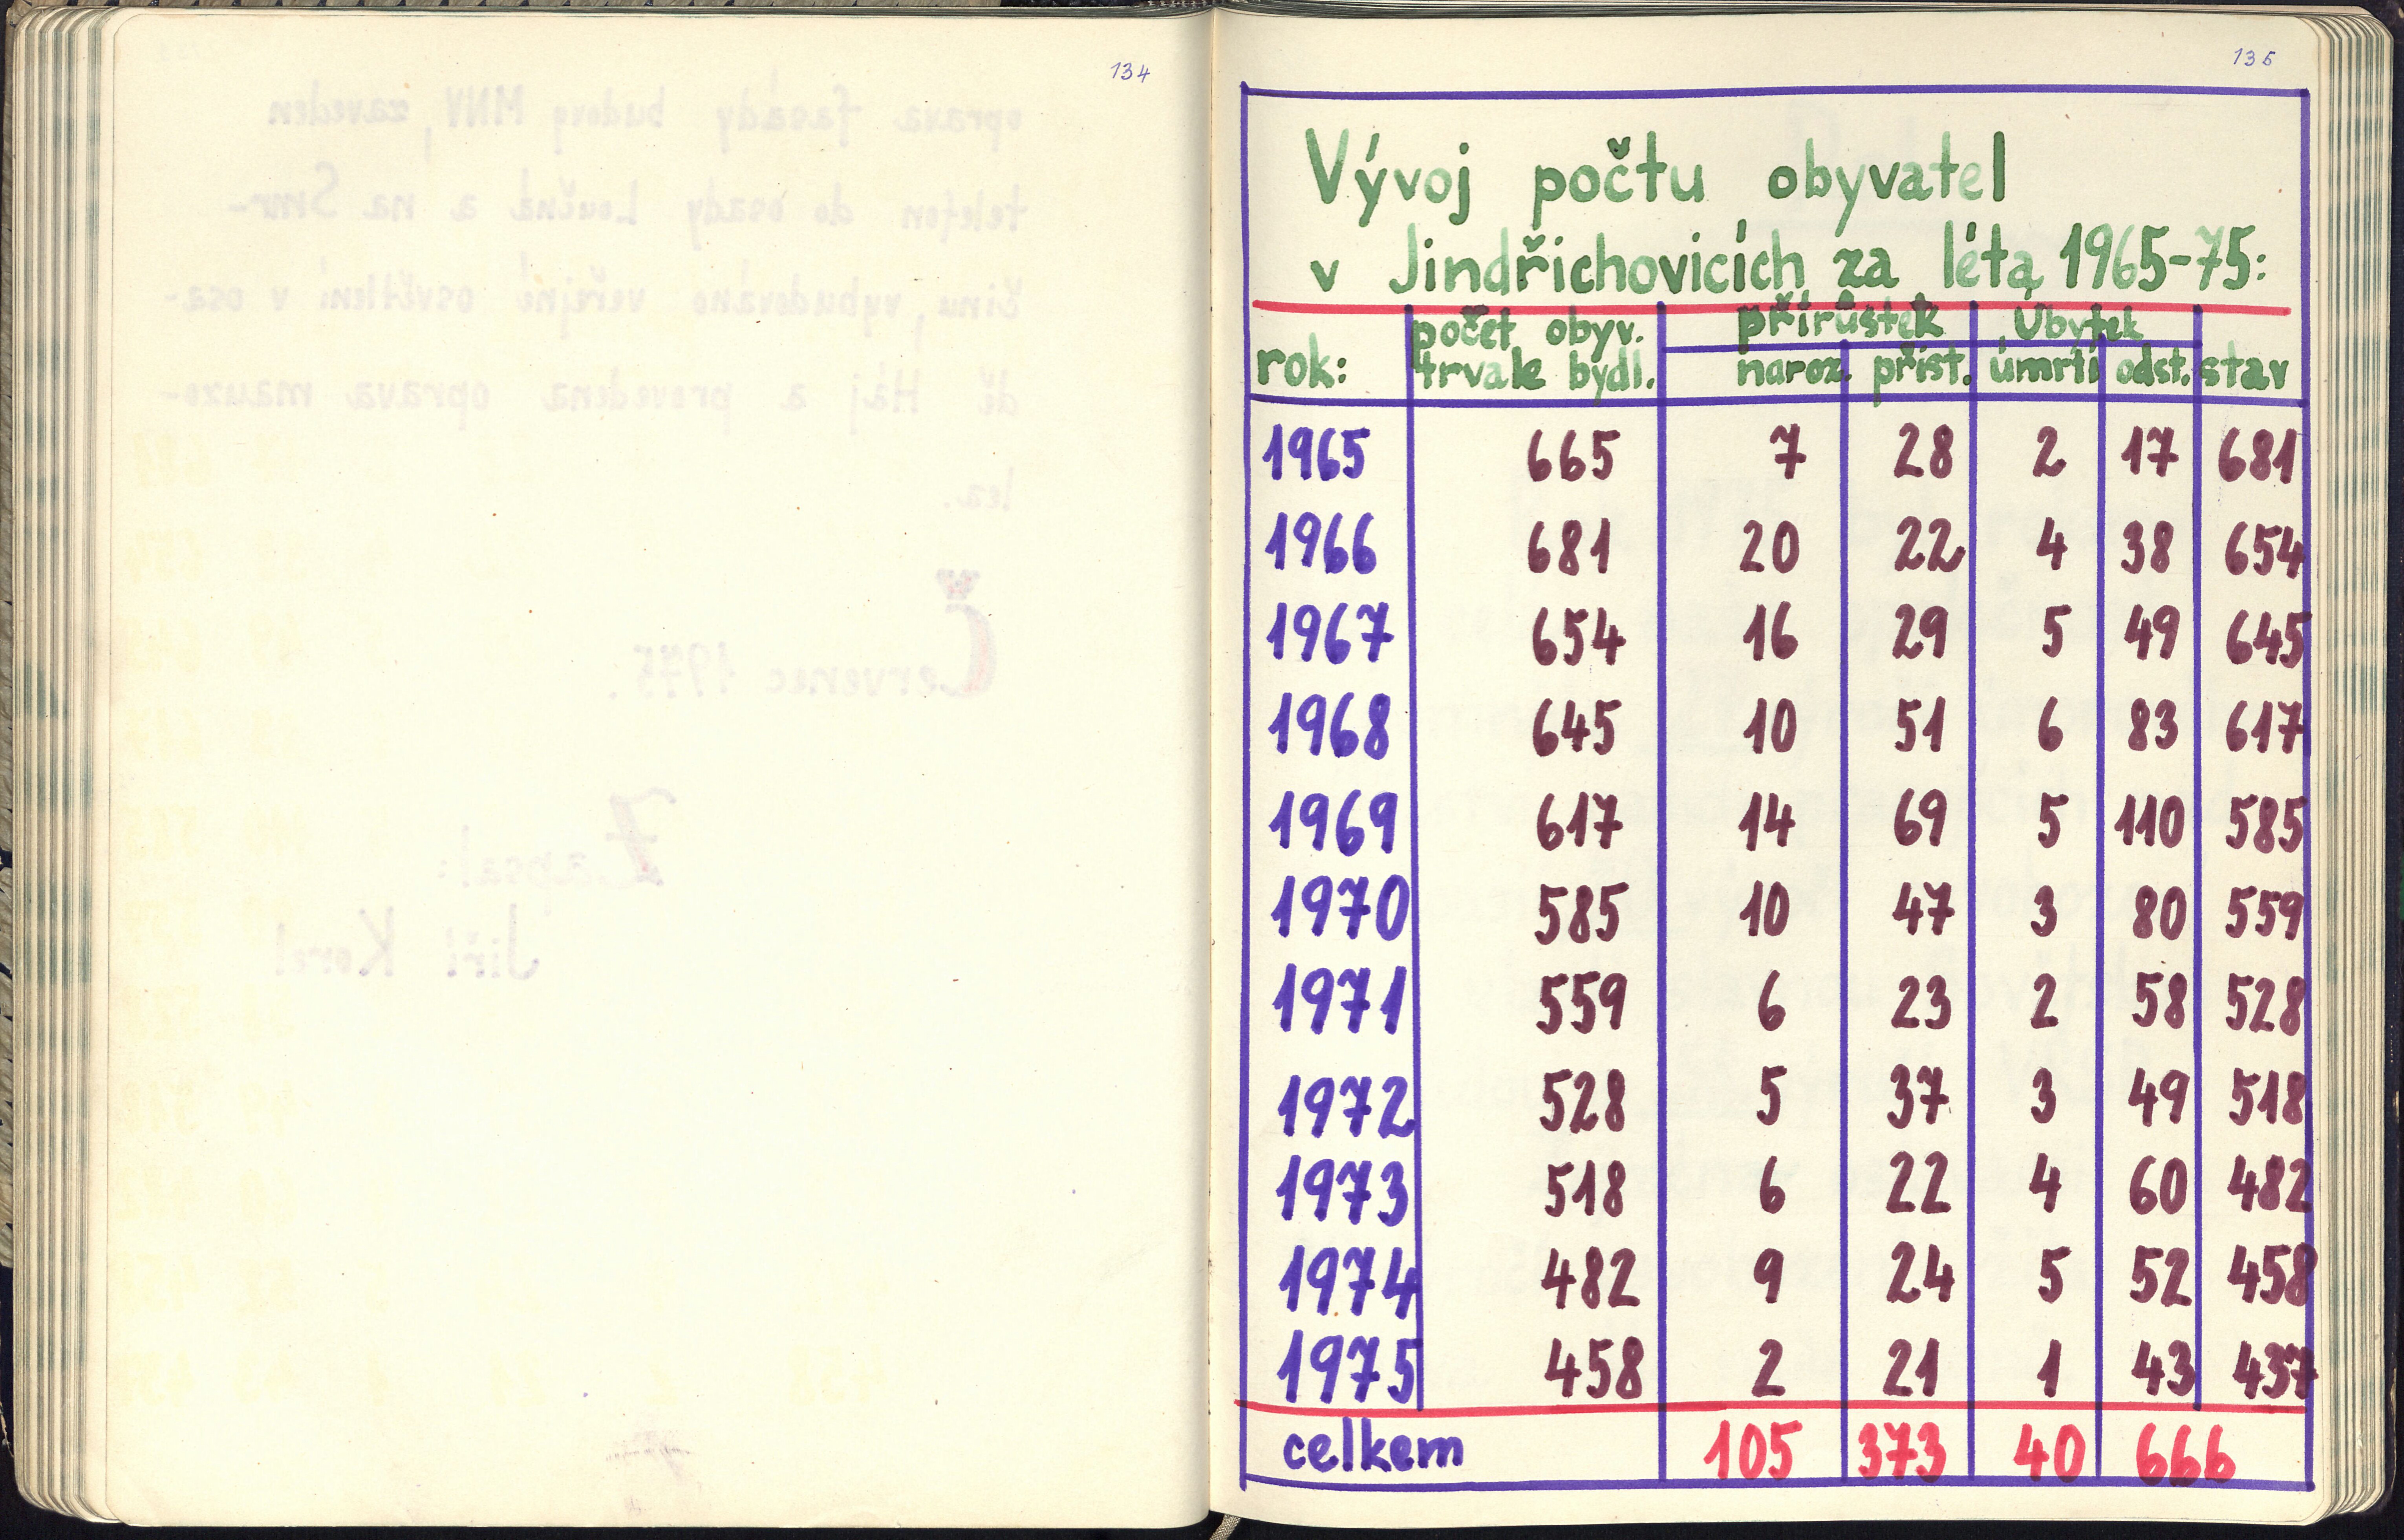 134
135
Vývoj počtu obyvatel
v Jindřichovicích za léta 1965-75:
rok: počet obyv. trvale bydl. přírůstek naroz. příst. Úbytek úmrtí odst. stav
1965 665 7 28 2 17 681
1966 681 20 22 4 38 654
1967 654 16 29 5 49 645
1968 645 10 51 6 83 617
1969 617 14 69 5 110 585
1970 585 10 47 3 80 559
1971 559 6 23 2 58 528
1972 528 5 37 3 49 518
1973 518 6 22 4 60 482
1974 482 9 24 5 52 458
1975 458 2 21 1 43 437
celkem 105 373 40 666